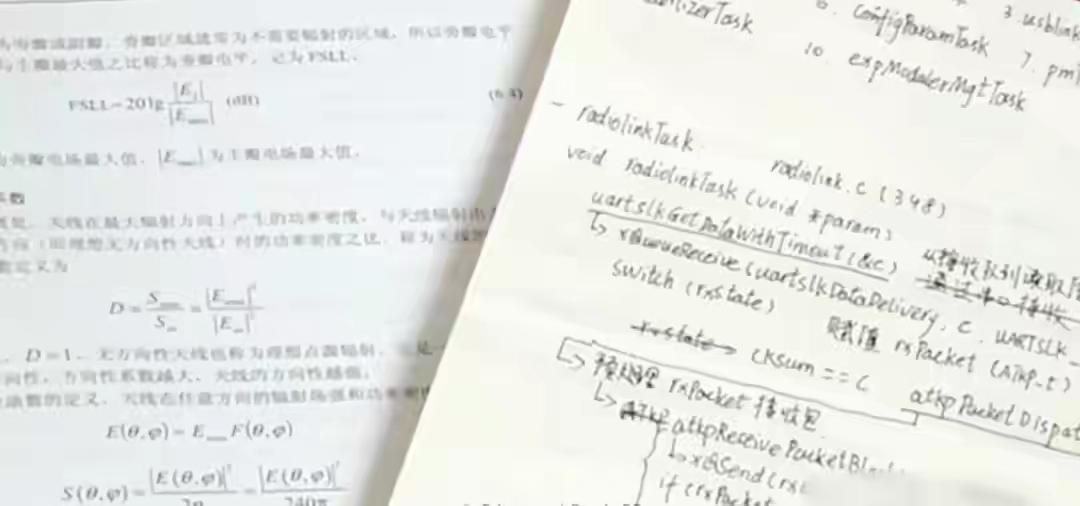 为旁瓣或副瓣，旁瓣区域通常为不需要辐射的区域，所以旁瓣电平
与主瓣最大值之比称为旁瓣电平，记为 FSLL，
FSLL=20lg |E₁|/|Emax| (dB) (6.4)
为旁瓣电场最大值，|Emax|为主瓣电场最大值。
系数
天线在最大辐射方向上产生的功率密度，与天线辐射
方向（即理想无方向性天线）时的功率密度之比，称为天线
定义为
D = Smax/Sav = |Emax|²/|Eav|²
，D=1，无方向性天线也称为理想点源辐射，
向性，方向性系数越大，天线的方向性越强。
函数的定义，天线在任意方向的辐射场强和功率密
E(θ,φ)=Emax F(θ,φ)
S(θ,φ)=|E(θ,φ)|²/2η=|E(θ,φ)|²/240π
3. usblink
izerTask 6. configParamTask 7. pmT
10. expModulerMgtTask
- radiolinkTask. radiolink.c (348)
void radiolinkTask (void *param)
uartslkGetDataWithTimeut(&c) 从接收队列读取
通过串口接收
↳ xQueueReceive (uartslkDataDelivery, c, UARTSLK_
switch (rxState) 赋值 rxPacket (atkp_t)
rxstate → cksum == c atkpPacketDispat
↳ 预处理 rxPacket 接收包
↳ ATKP atkpReceivePacketBl
↳ xQSend (rx
if (rxPacket